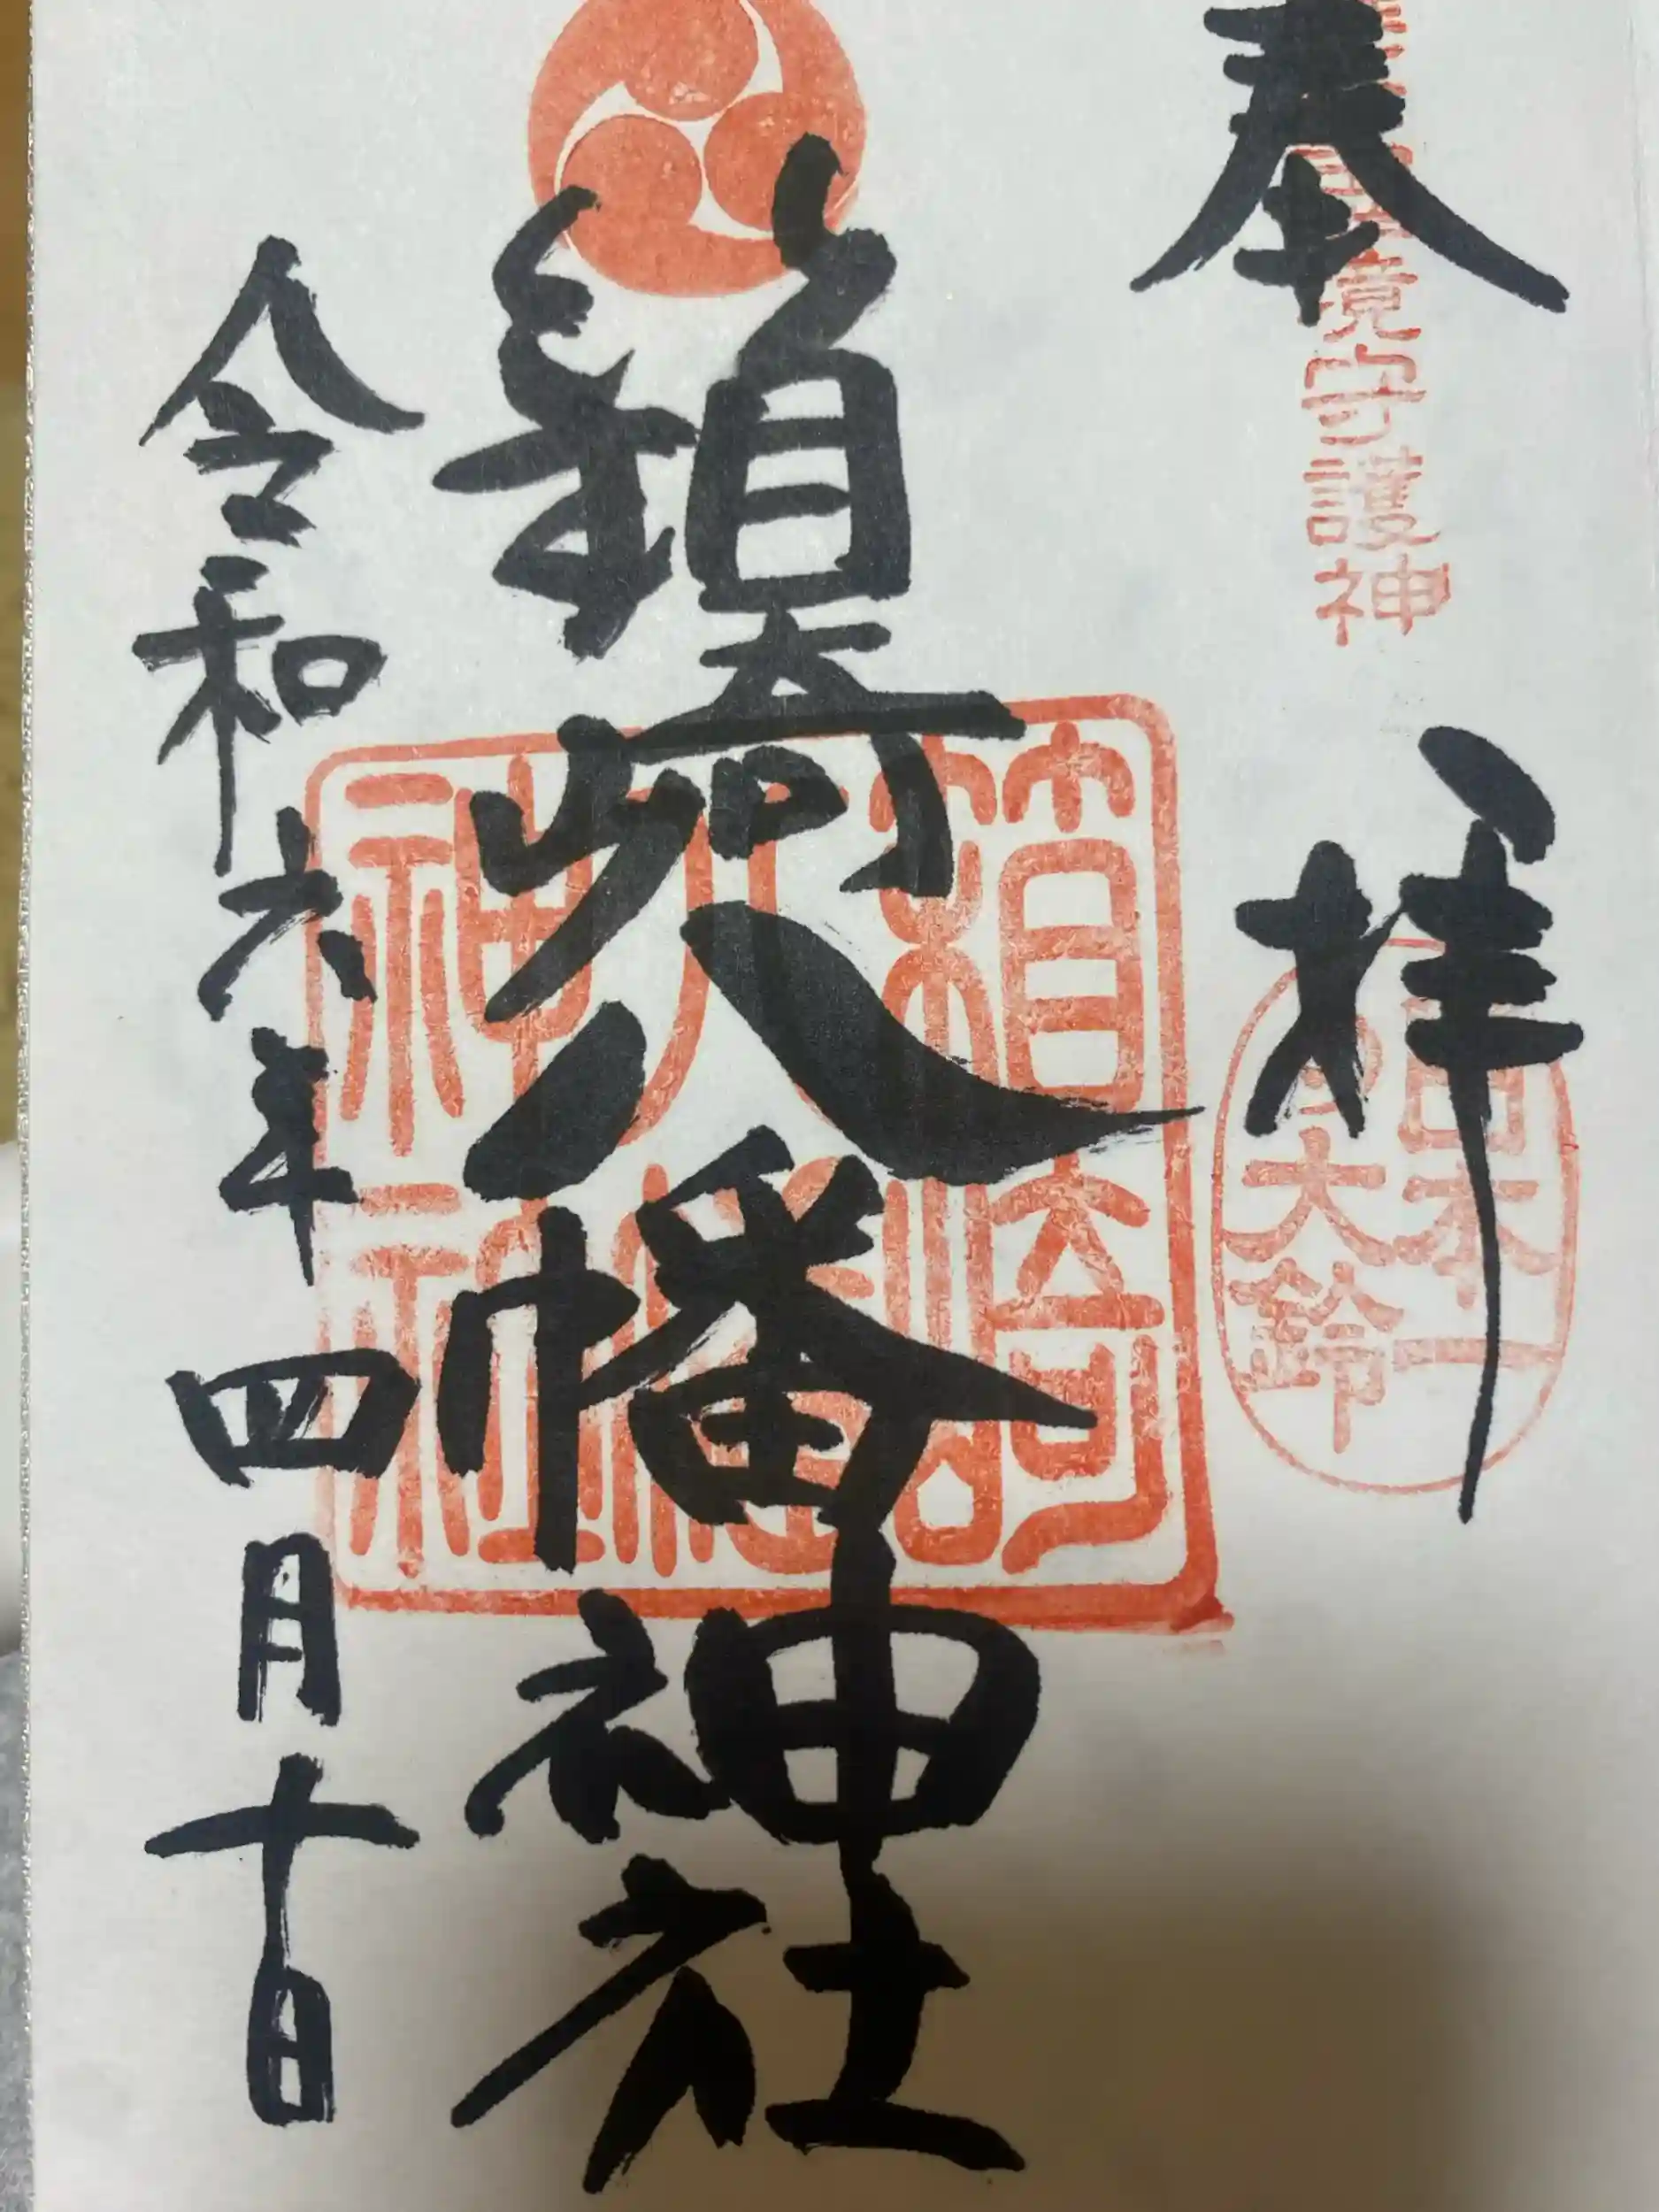 奉拝
境守護神
日本一
の大鈴
箱崎八幡神社
箱崎
八幡
神社
令和六年四月十日